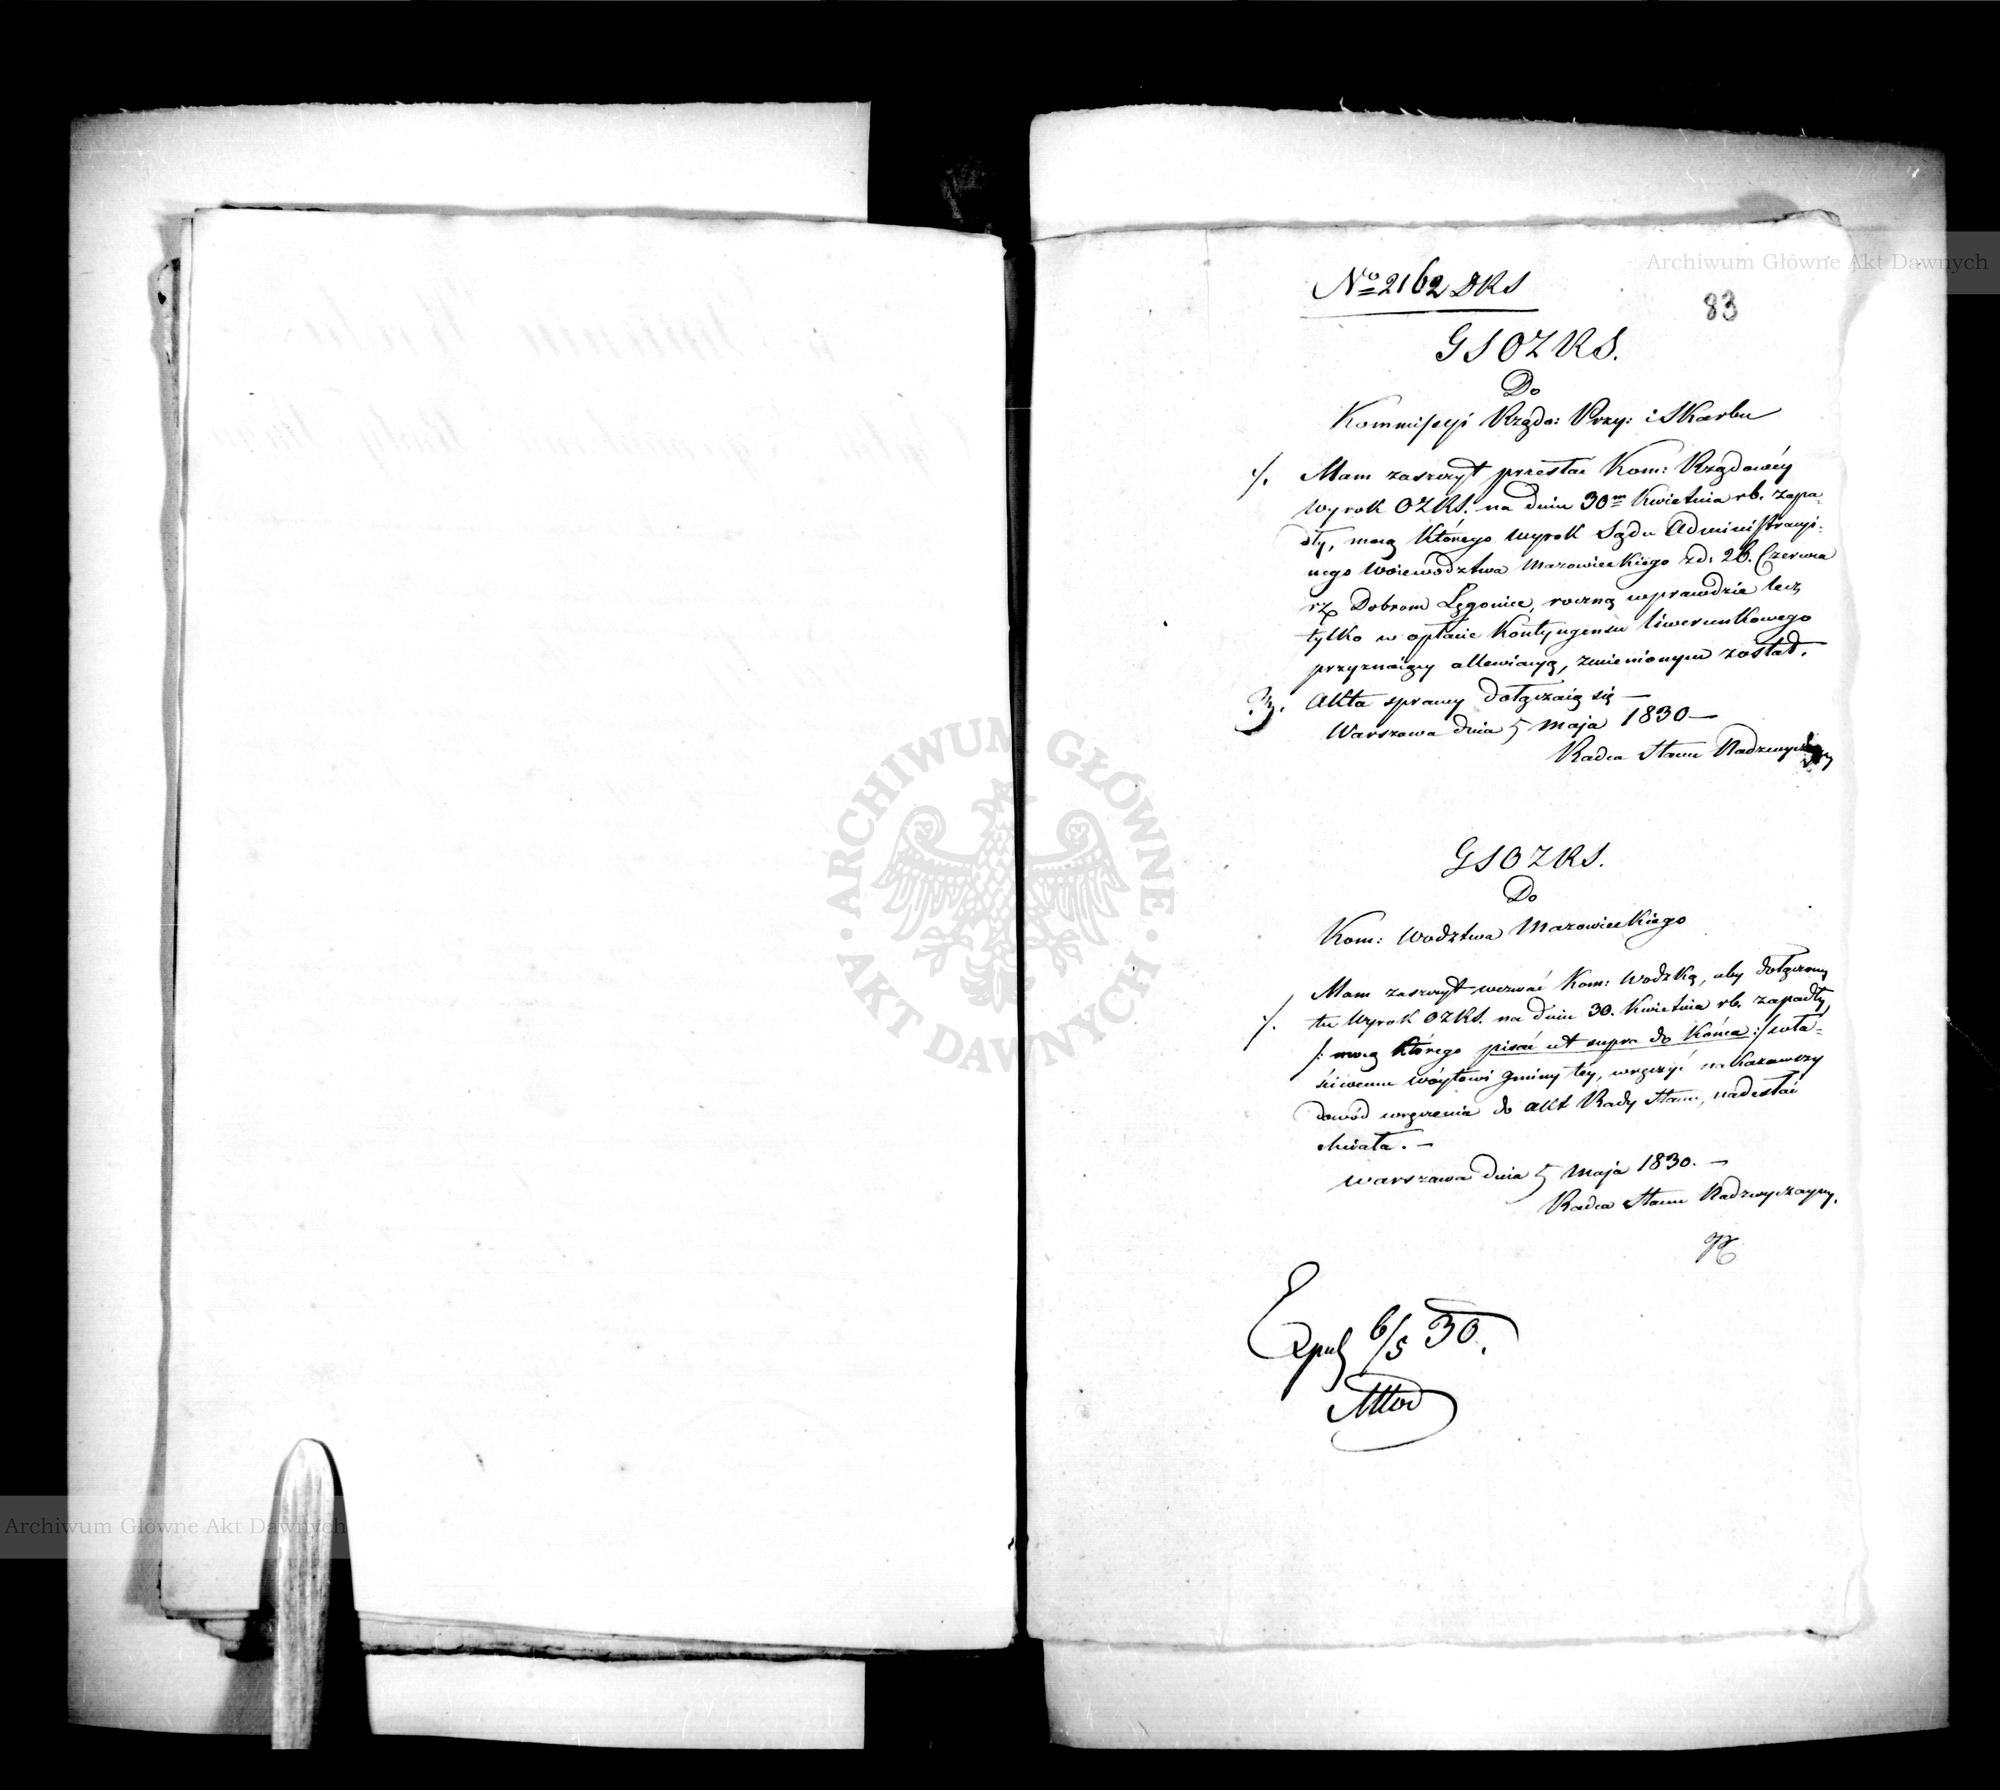 No 2162 DKS
83
GSOZRS.
Do
Kommissyi Rządo: Przy: i Skarbu
./. Mam zaszczyt przesłać Kom: Rządowéy
Wyrok OZRS. na dniu 30m Kwietnia rb. zapa-
dły, mocą którego wyrok Sądu Administracyi-
nego Woiewodztwa Mazowieckiego zd: 26. Czerwca
Dobrom Łęgonice, roczną wprawdzie lecz
tylko w opłacie Kontyngensu liwerunkowego
przyznaiący allewiacyą, zmienionym został.
Akta sprawy dołączaią się —
Warszawa dnia 5 Maja 1830 —
Radca Stanu Nadzwyczayny
GSOZRS.
Do
Kom: Wodztwa Mazowieckiego
Mam zaszczyt wezwać Kom: Wodzką, aby dołączony
./. tu Wyrok OZRS. na dniu 30. Kwietnia rb. zapadły,
/: mocą którego pisać ut supra do końca :/ wła-
ściwemu Wóytowi Gminy téy, wręczyć nakazawszy
dowód wręczenia do Akt Rady Stanu, nadesłać
chciała. —
Warszawa dnia 5 Maja 1830. —
Radca Stanu Nadzwyczayny.
6/5 30.
Archiwum Główne Akt Dawnych
ARCHIWUM GŁÓWNE
AKT DAWNYCH
Archiwum Główne Akt Dawnych